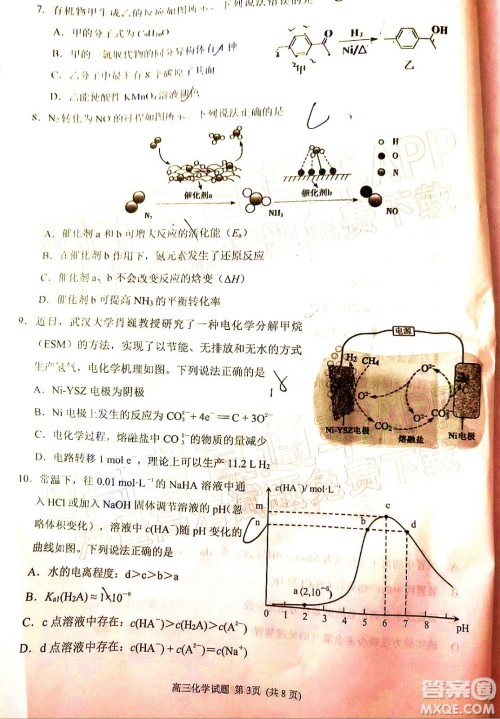 7. 有机物甲生成乙的反应如图所示，下列说法错误的是
A. 甲的分子式为
B. 甲的一氯取代物的同分异构体有
C. 乙分子中最多有8个碳原子共
D. 乙能使酸性KMnO₄溶液褪色
H₂
Ni/Δ
OH
甲
乙
8. N₂转化为NO的过程如图所示，下列说法正确的是
催化剂a
催化剂b
N₂
NH₃
NO
H
O
N
A. 催化剂a和b可增大反应的活化能（Eₐ）
B. 在催化剂b作用下，氮元素发生了还原反应
C. 催化剂a、b不会改变反应的焓变（ΔH）
D. 催化剂b可提高NH₃的平衡转化率
9. 近日，武汉大学肖巍教授研究了一种电化学分解甲烷
（ESM）的方法，实现了以节能、无排放和无水的方式
生产氢气，电化学机理如图。下列说法正确的是
A. Ni-YSZ电极为阴极
B. Ni电极上发生的反应为CO₃²⁻+4e⁻═C+3O²⁻
C. 电化学过程，熔融盐中CO₃²⁻的物质的量减少
D. 电路转移1 mol e⁻，理论上可以生产11.2 L H₂
电源
H₂ CH₄
O²⁻
CO₂
CO₃²⁻
O²⁻
C
Ni-YSZ电极 熔融盐 Ni电极
10. 常温下，往0.01 mol·L⁻¹的NaHA溶液中通
入HCl或加入NaOH固体调节溶液的pH（忽
略体积变化），溶液中c(HA⁻)随pH变化的
曲线如图。下列说法正确的是
A. 水的电离程度：d>c>b>a
B. Kₐ₁(H₂A)≈1×10⁻⁸
C. c点溶液中存在：c(HA⁻)>c(H₂A)>c(A²⁻)
D. d点溶液中存在：c(HA⁻)+c(A²⁻)=c(Na⁺)
c(HA⁻)/mol·L⁻¹
m
n
b
c
d
a (2,10⁻⁸)
0 1 2 3 4 5 6 7 8 pH
高三化学试题 第3页（共8页）
答案圈
MXQE.COM